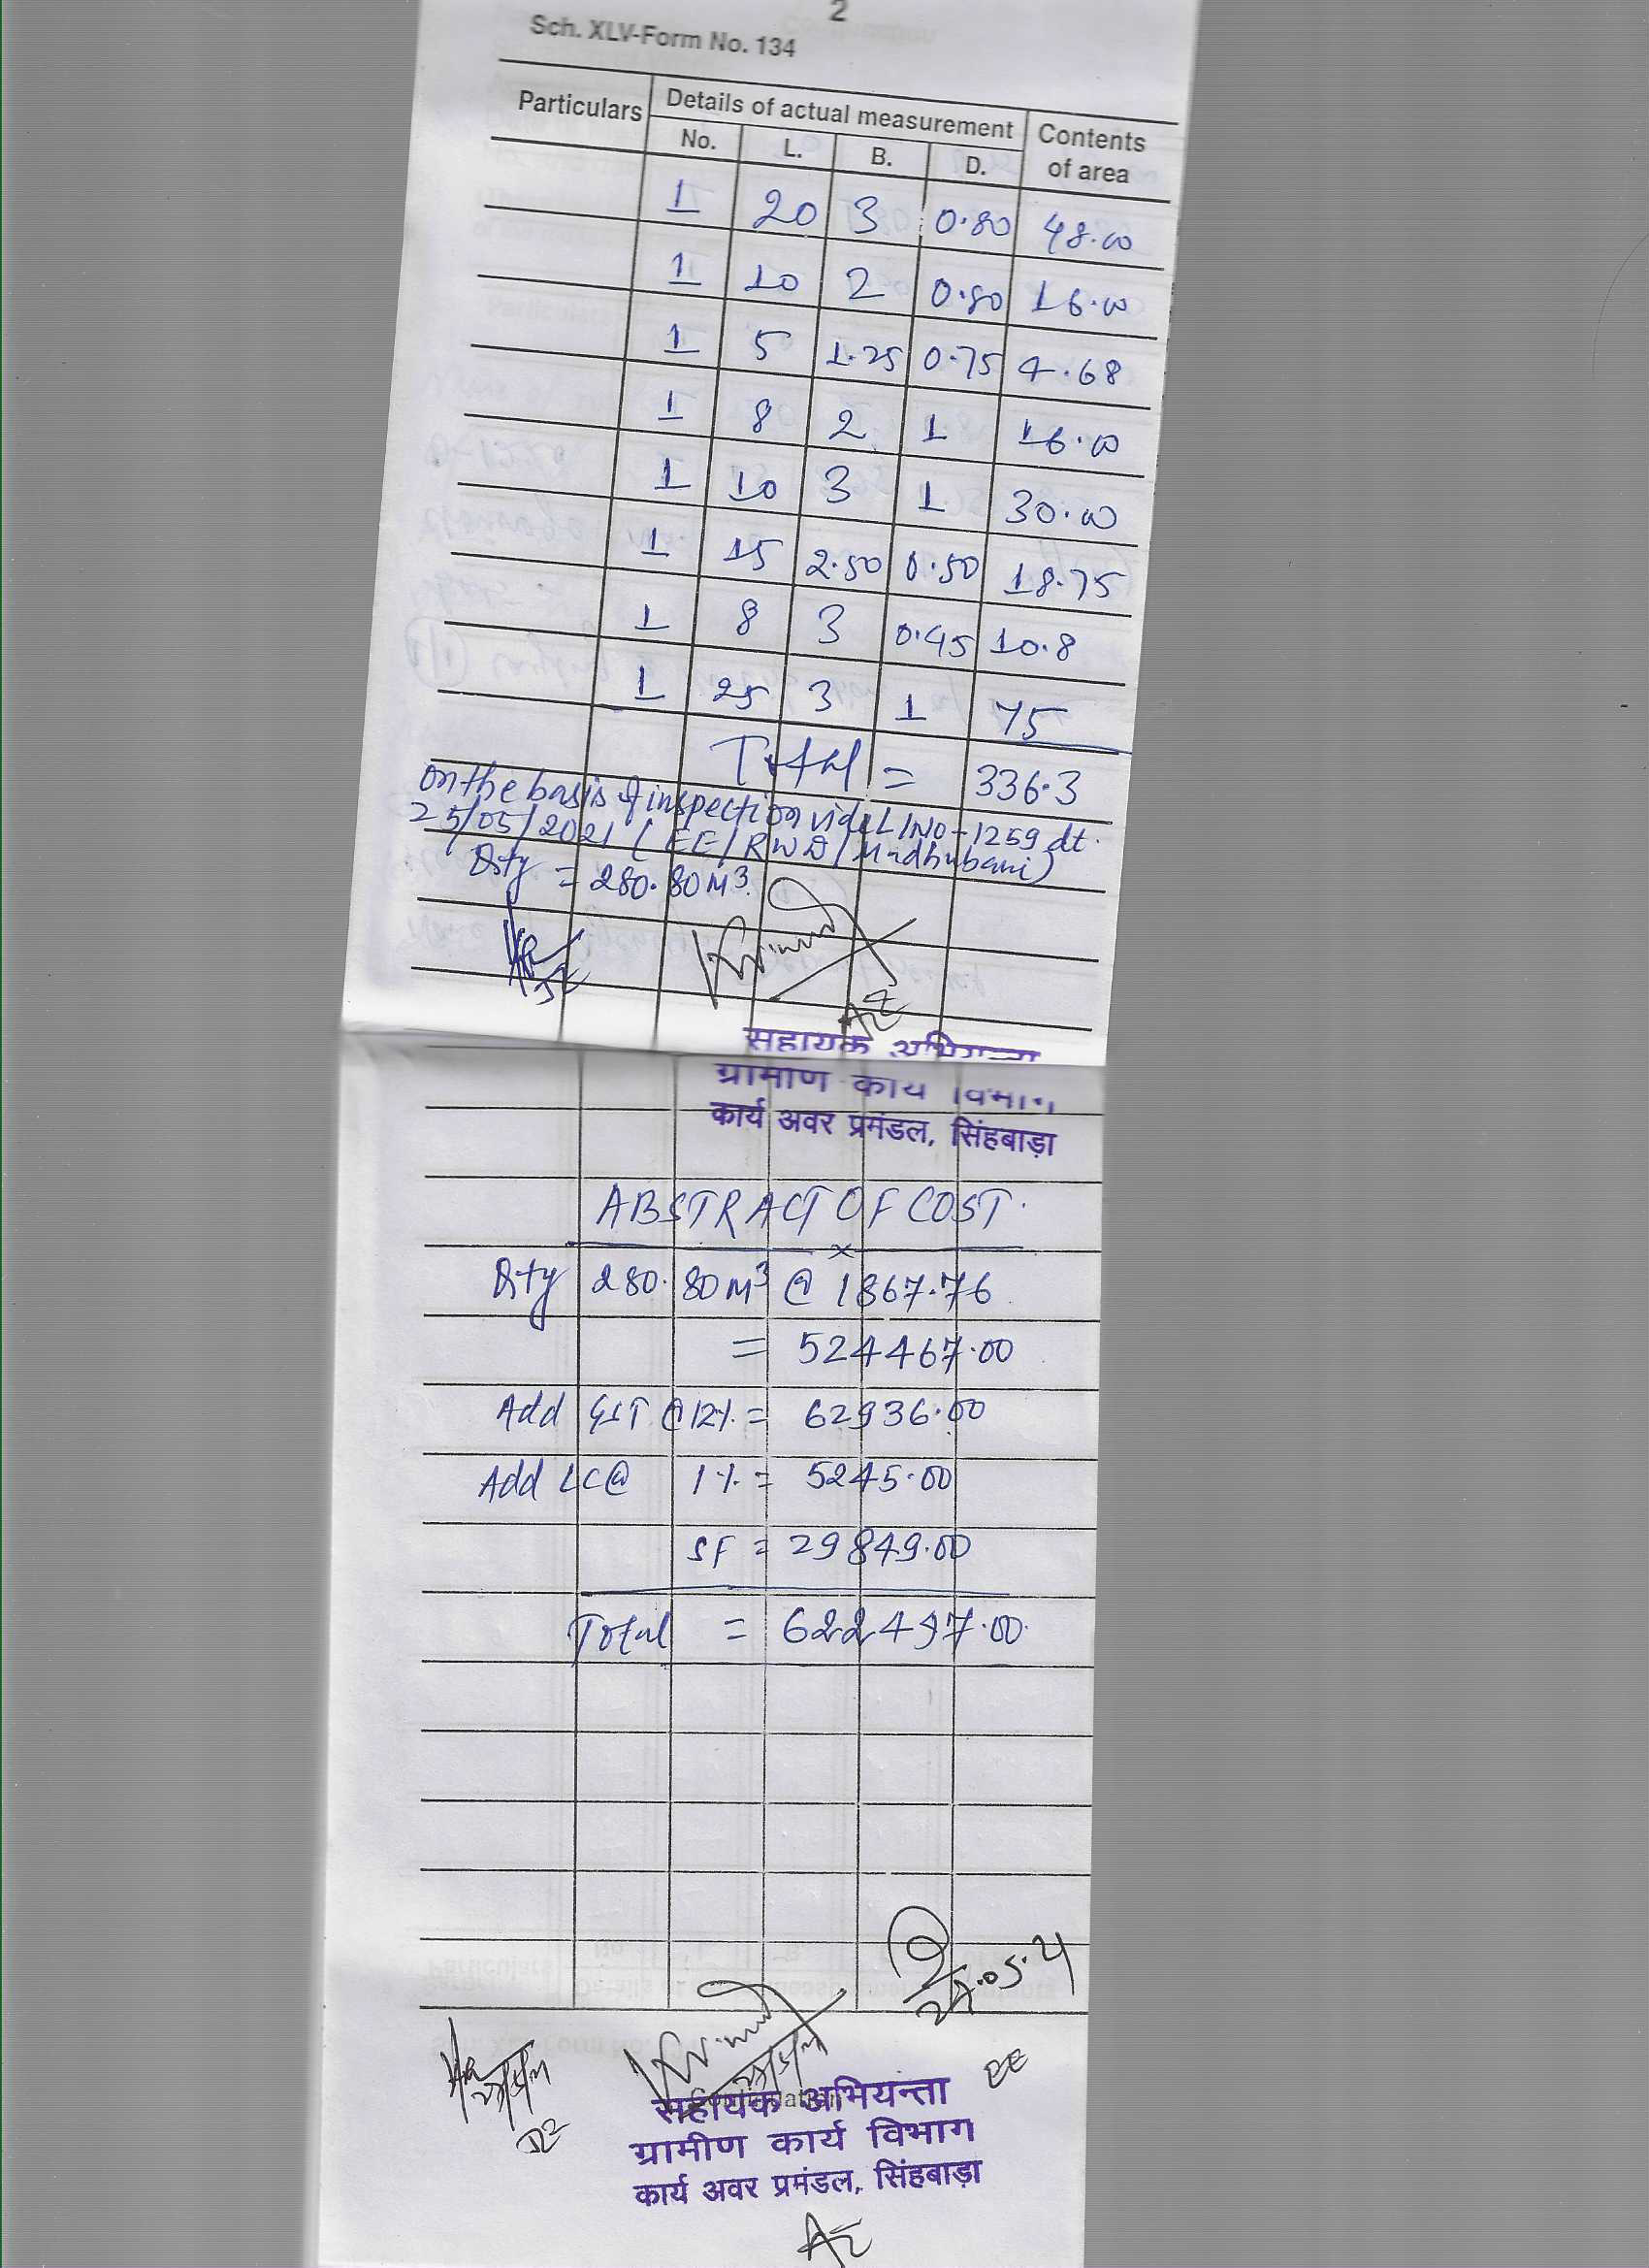 2
Sch. XLV-Form No. 134
Particulars Details of actual measurement Contents of area
No. L. B. D.
1 20 3 0.80 48.00
1 10 2 0.80 16.00
1 5 1.25 0.75 4.68
1 8 2 1 16.00
1 10 3 1 30.00
1 15 2.50 0.50 18.75
1 8 3 0.45 10.8
1 25 3 1 75
Total = 336.3
On the basis of inspection vide L/No-1259 dt.
25/05/2021 (EE/RWD/Madhubani)
Qty = 280.80M³.
JE
AE
सहायक अभियन्ता
ग्रामीण कार्य विभाग
कार्य अवर प्रमंडल, सिंहबाड़ा
ABSTRACT OF COST.
x
Qty 280.80M³ @ 1867.76
= 524467.00
Add GST @12% = 62936.00
Add LC@ 1% = 5245.00
SF = 29849.00
Total = 622497.00
.05.21
EE
JE
सहायक अभियन्ता
ग्रामीण कार्य विभाग
कार्य अवर प्रमंडल, सिंहबाड़ा
AE